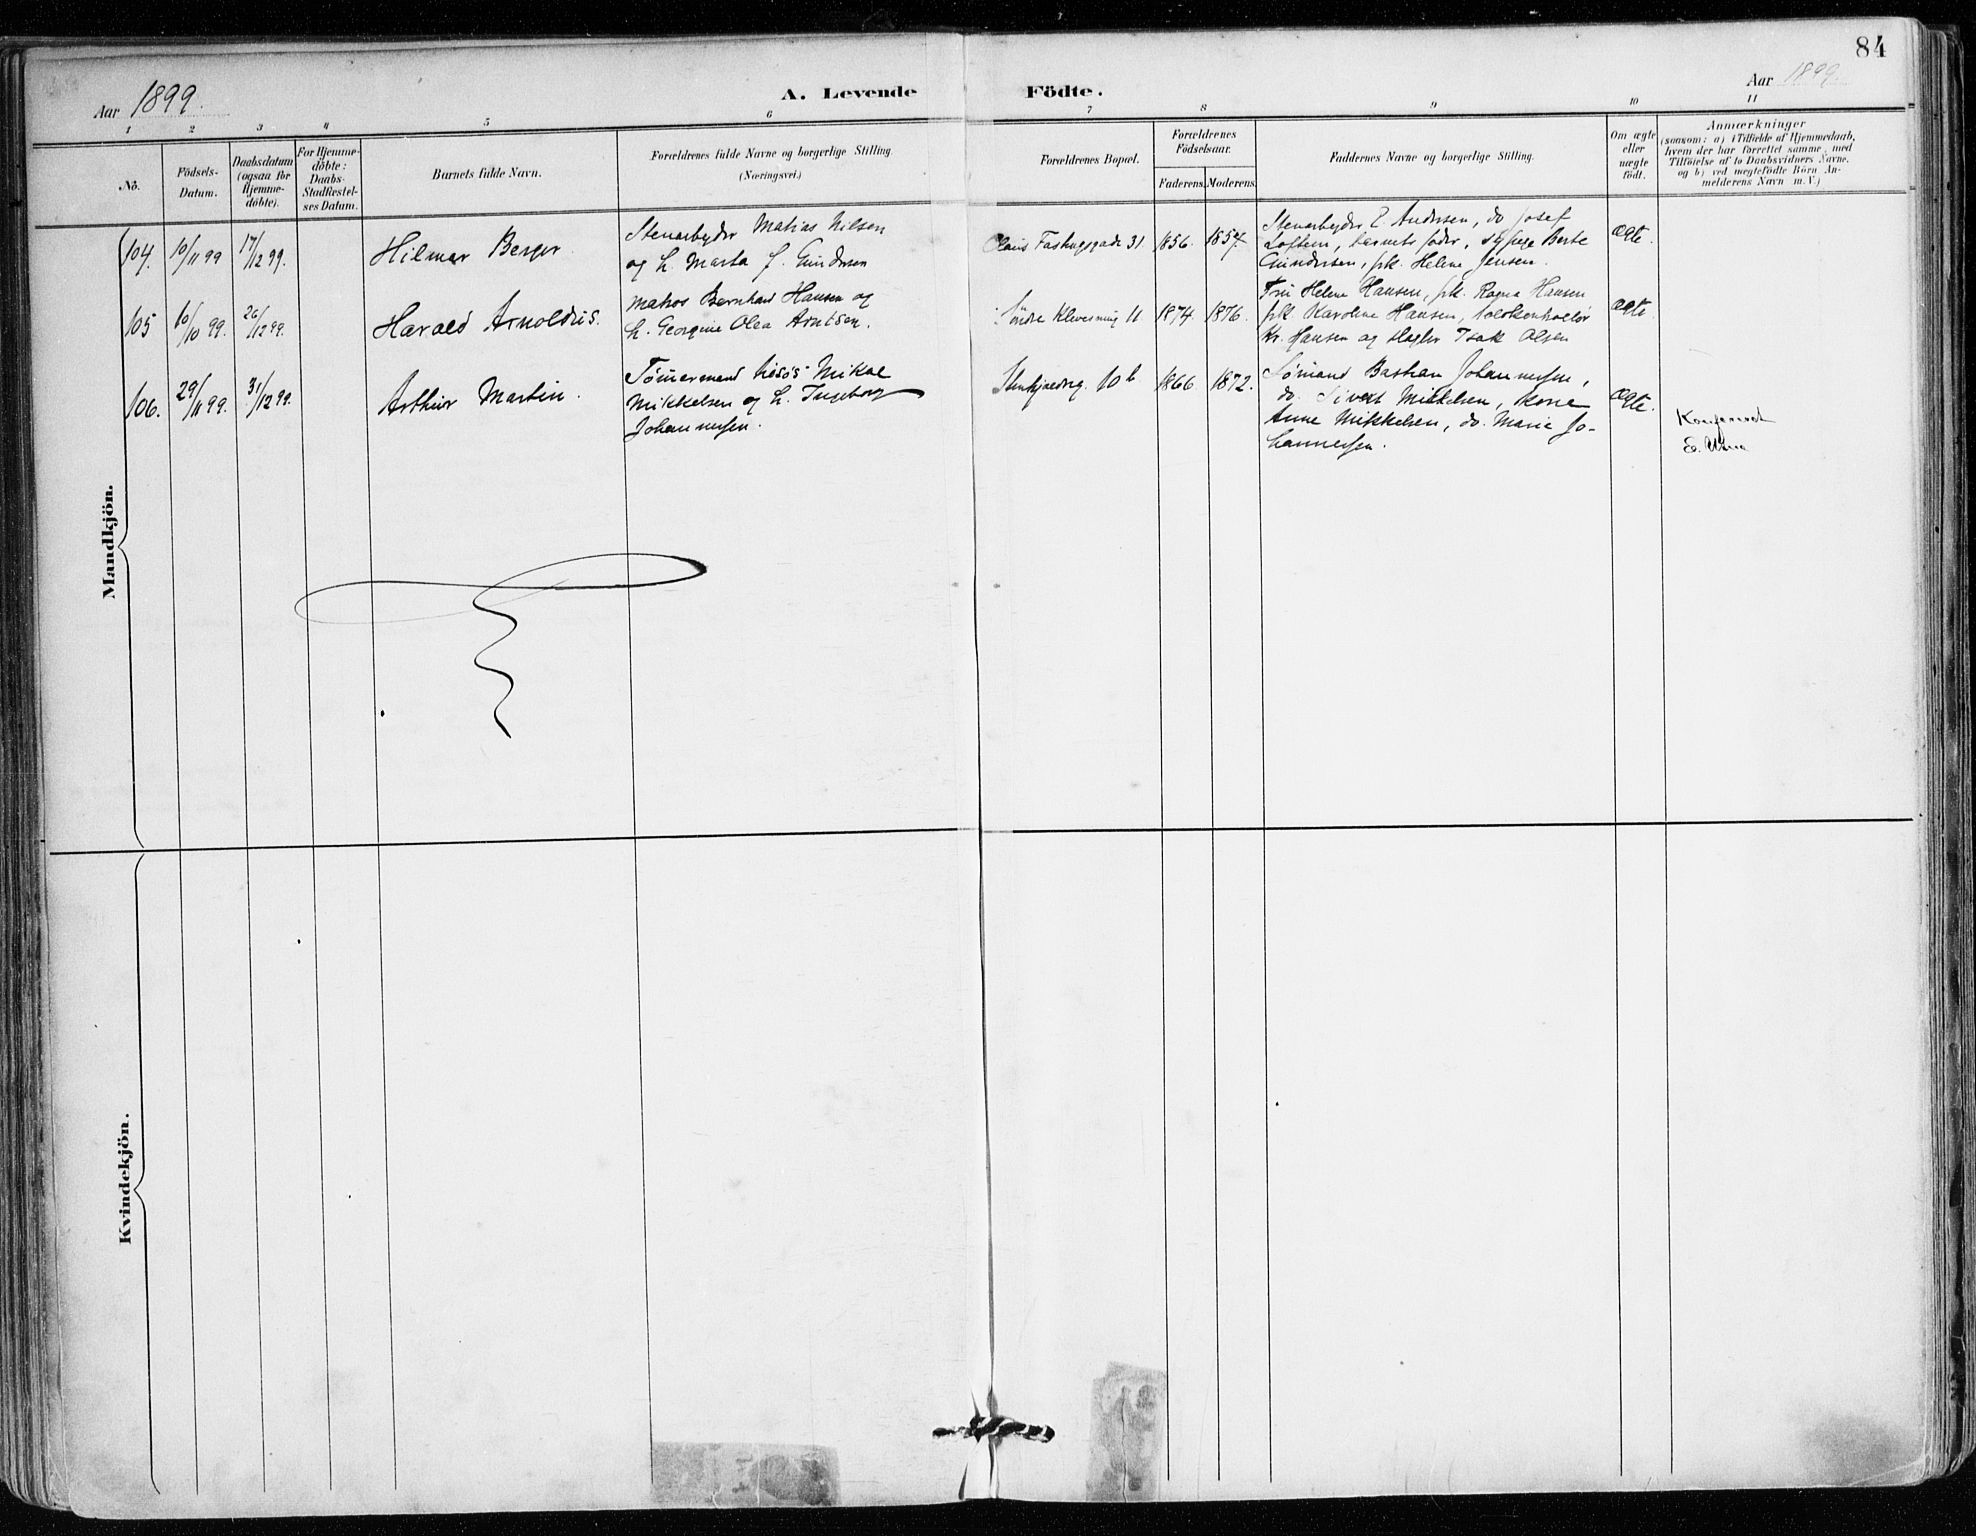 84
Aar 1899.
A. Levende Födte.
Aar 1899.
1 2 3 4 5 6 7 8 9 10 11
No.
Födsels-
Datum.
Daabsdatum
(ogsaa for
Hjemme-
döbte).
For Hjemme-
döbte:
Daabs-
Stadfæstel-
ses Datum.
Barnets fulde Navn.
Forældrenes fulde Navne og borgerlige Stilling.
(Næringsvei.)
Forældrenes Bopæl.
Forældrenes
Födselsaar.
Faderens. Moderens.
Faddernes Navne og borgerlige Stilling.
Om ægte
eller
uægte
födt.
Anmærkninger
(saasom: a) i Tilfælde af Hjemmedaab,
hvem der har forrettet samme, med
Tilföielse af to Daabsvidners Navne,
og b) ved uægtefödte Börn An-
melderens Navn m. V.)
Mandkjön.
104. 10/11 99 17/12 99. Hilmar Berger.
Stenarbeyder Matias Nilsen
og h. Marta f. Gundersen
31 1856. 1857.
Stenarbeyder E Andersen, do Josef
Loftem, barnets fader, Berte
Gundersen, pk. Helene Jensen.
Ægte.
105 16/10 99. 26/12 99. Harald Arnoldus.
Matros Bernhard Hansen og
h. Georgine Olea Arntsen.
Søndre Klevesmug 11 1874 1876.
Fru Helene Hansen, pk. Ragna Hansen
pk Karoline Hansen,
Kr. Hansen og Isak Olsen
Ægte.
106. 29/11 99. 31/12 99. Arthur Martin.
Tømmermand tilsøs Mikal
Mikkelsen og h. Ingeborg
Johannessen.
10 b 1866 1872.
Sømand Bastian Johannessen,
do. Sivert Mikkelsen, Kone
Anne Mikkelsen, do. Marie Jo-
hannessen.
Ægte.
Konfirmeret
Kvindekjön.